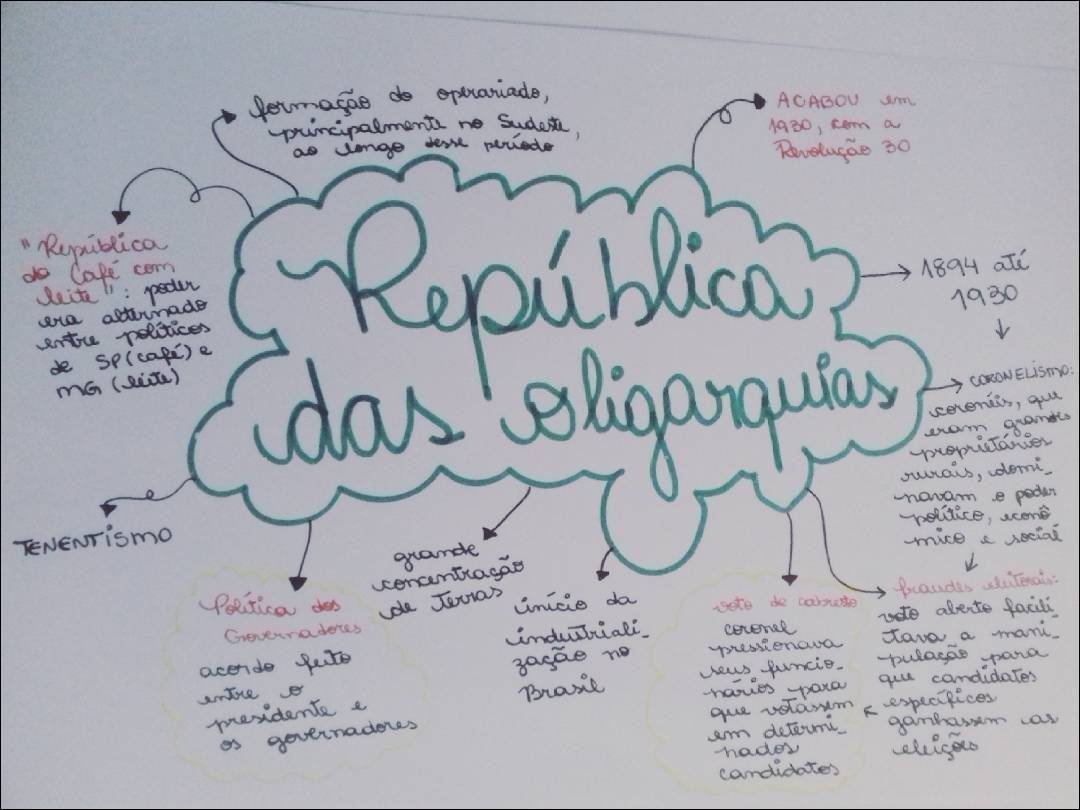 República
das oligarquias
formação do operariado,
principalmente no Sudeste,
ao longo desse período
ACABOU em
1930, com a
Revolução 30
1894 até
1930
CORONELISMO:
coronéis, que
eram grandes
proprietários
rurais, domi-
navam o poder
político, econô
mico e social
fraudes eleitorais:
voto aberto facili
tava a mani-
pulação para
que candidatos
específicos
ganhassem as
eleições
voto de cabresto
coronel
pressionava
seus funcio-
nários para
que votassem
em determi-
nados
candidatos
início da
industriali-
zação no
Brasil
grande
concentração
de terras
Política dos
Governadores
acordo feito
entre o
presidente e
os governadores
TENENTISMO
"República
do Café com
leite": poder
era alternado
entre políticos
de SP (café) e
MG (leite)